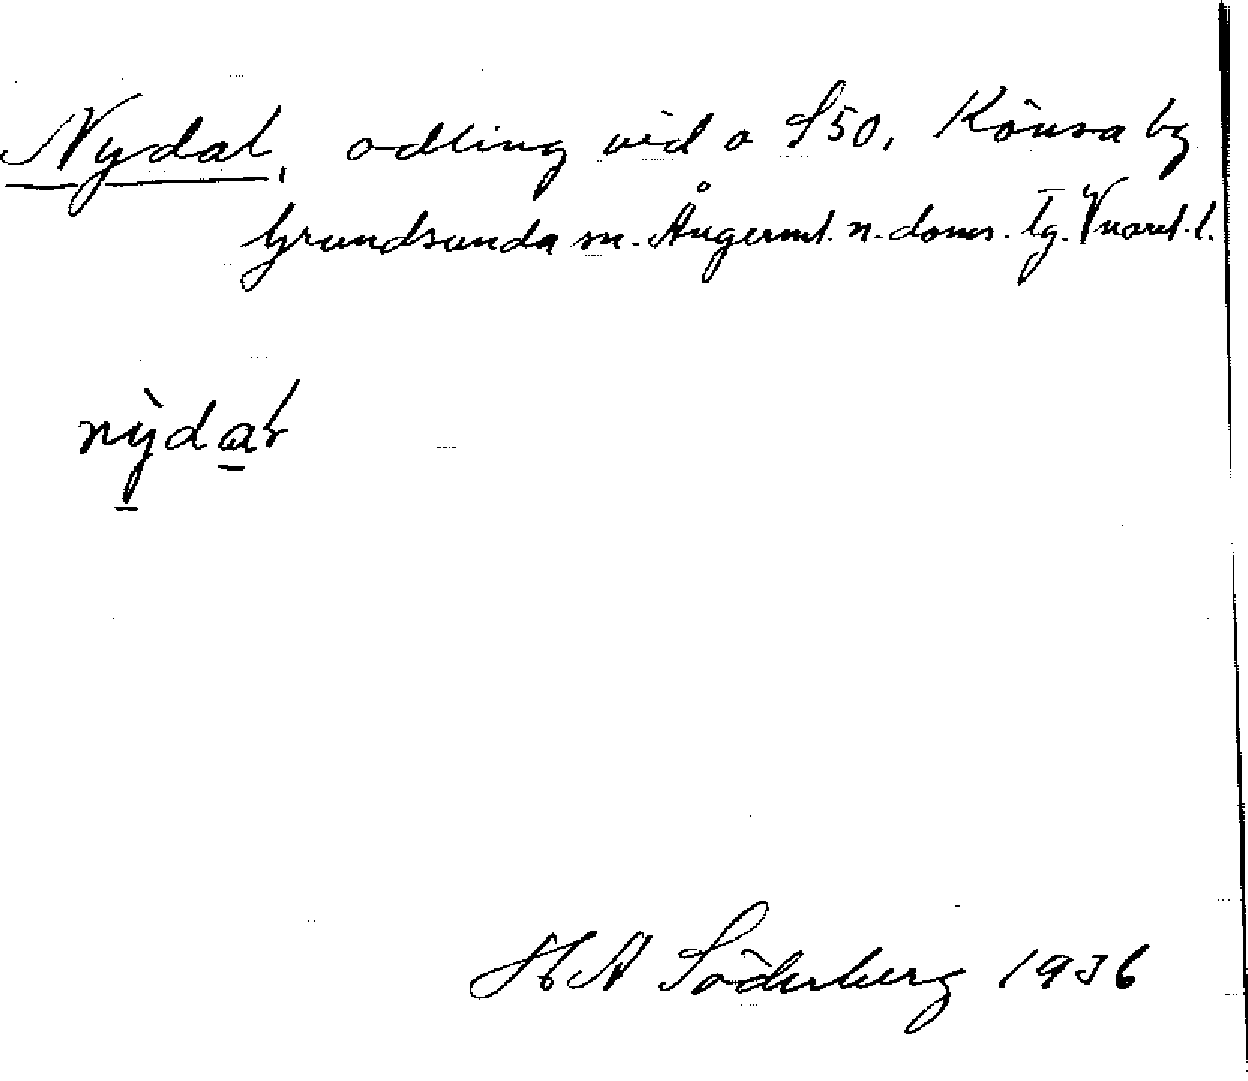 Nydal, odling vid o S50, Könsa by
Grundsunda sn. Ångerml. n. doms. tg. Vnorrl. l.
nỳdaɫ
H A Söderberg 1936